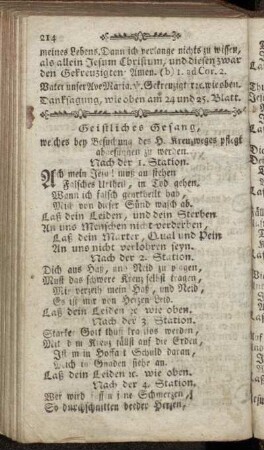 214
meines Lebens. Dann ich verlange nichts zu wissen,
als allein Jesum Christum, und diesen zwar
den Gekreuzigten. Amen. (b) 1. ad Cor. 2.
Vater unser Ave Maria. Gekreuzigt ꝛc. wie oben.
Danksagung, wie oben am 24 und 25. Blatt.
Geistliches Gesang,
welches bey Besuchung des H. Kreuzweges pflegt
abgesungen zu werden.
Nach der 1. Station.
Ach mein Jesu! muß an stehen
Falsches Urtheil, in Tod gehen.
Wann ich falsch geurtheilt hab,
Mich von dieser Sünd wasch ab.
Laß dein Leiden, und dein Sterben
An uns Menschen nicht verderben,
Laß dein Marter, Qual und Pein
An uns nicht verlohren seyn.
Nach der 2. Station.
Dich aus Haß, und Neid zu plagen,
Must das schwere Kreuz selbst tragen,
Mir verzeih mein Haß, und Neid,
Es ist mir von Herzen leid.
Laß dein Leiden ꝛc wie oben.
Nach der 3. Station.
Starker Gott thust kraftlos werden,
Mit dem Kreuz fällst auf die Erden,
Ist mein Hoffart Schuld daran,
Mich in Gnaden siehe an.
Laß dein Leiden ꝛc. wie oben.
Nach der 4. Station.
Wer wird seine Schmerzen,
So durchschnitten beeder Herzen,